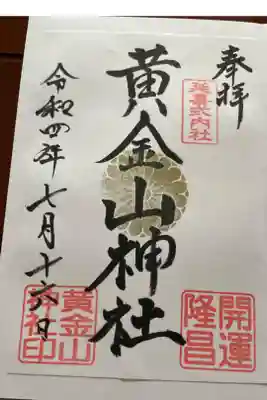 奉拝
延喜式内社
黄金山神社
開運
隆昌
令和四年七月十六日
黄金山
神社印